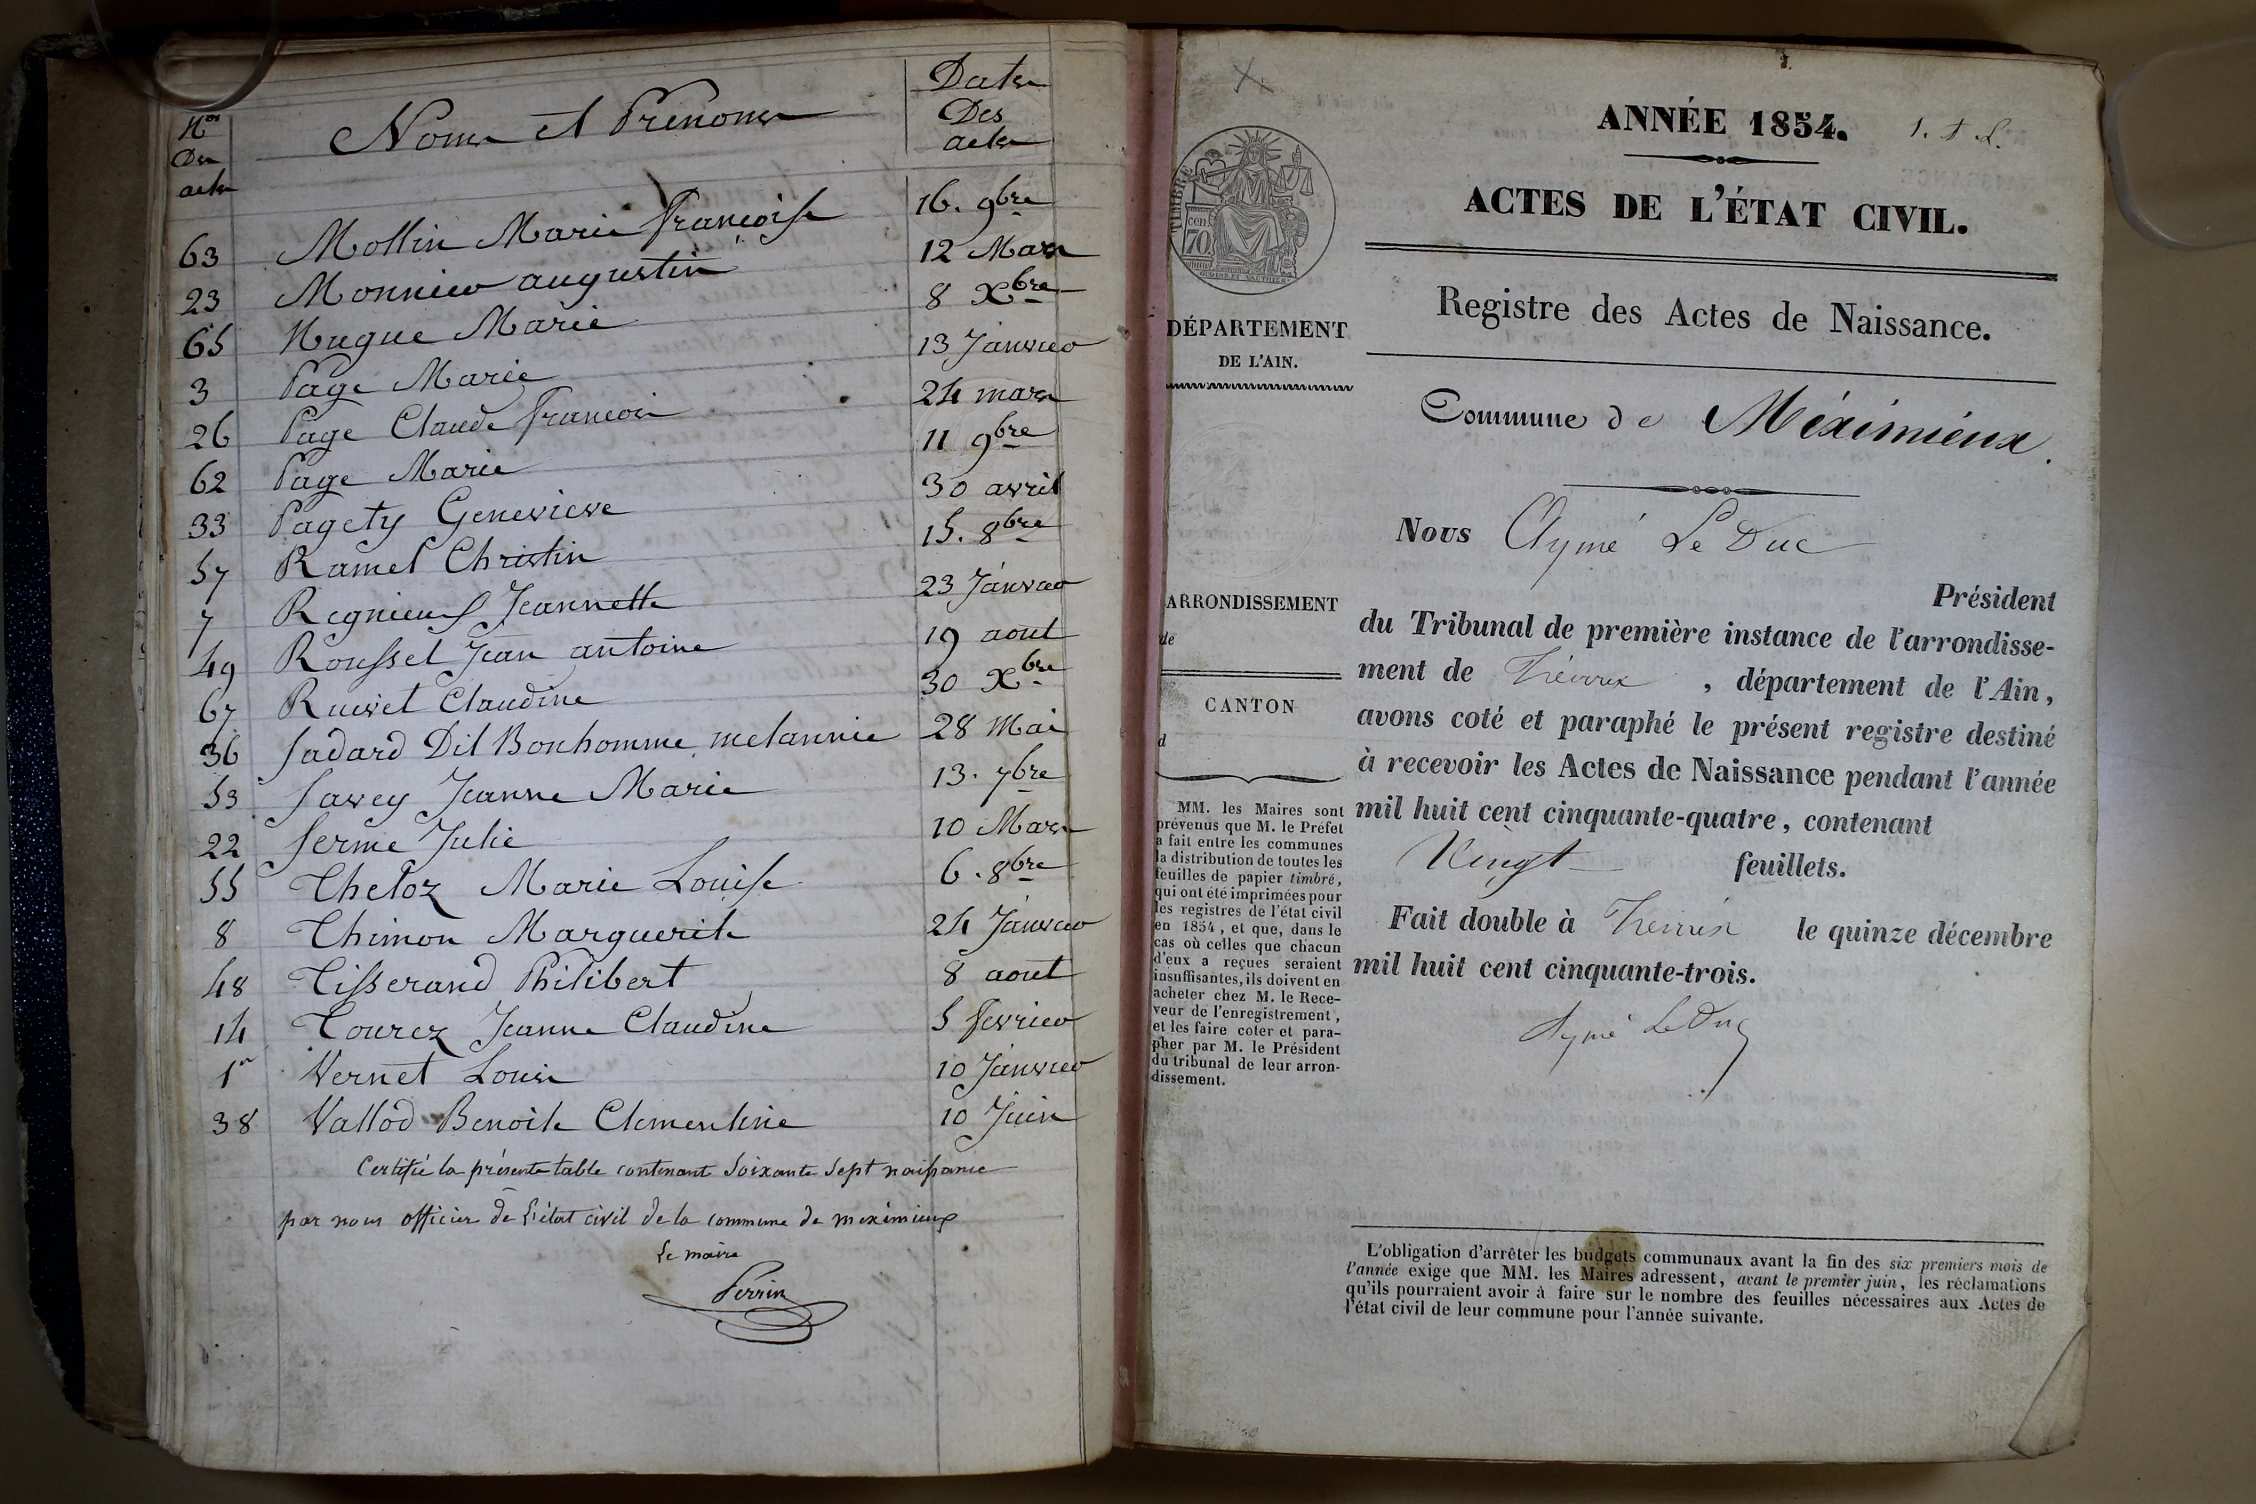 Nos Des actes
Noms et Prénoms
Dates Des actes
63 Mollin Marie françoise 16. 9bre
23 Monnier augustin 12 Mars
65 Hugue Marie 8 Xbre
3 Page Marie 13 Janvier
26 Page Claude françois 24 mars
62 Page Marie 11 9bre
33 Pagety Genevieve 30 avril
57 Ramel Christin 15. 8bre
7 Regnieux Jeannette 23 Janvier
49 Roussel Jean antoine 19 aout
67 Ruivet Claudine 30 Xbre
36 Sadard Dit Bonhomme melannie 28 Mai
53 Savey Jeanne Marie 13. 7bre
22 Serme Julie 10 Mars
55 Theloz Marie Louise 6. 8bre
8 Thimon Marguerite 24 Janvier
48 Tisserand Philibert 8 aout
14 Tourez Jeanne Claudine 5 fevrier
1er Vernet Louis 10 Janvier
38 Vallod Benoite Clementine 10 Juin
Certifié la présente table contenant soixante sept naissance
par nous officier de l'état civil de la commune de meximieux
Le maire
Perrin
ANNÉE 1854.
ACTES DE L'ÉTAT CIVIL.
TIMBRE
cen 70
DÉPARTEMENT
DE L'AIN.
Registre des Actes de Naissance.
Commune de Méximieux.
Nous Aymé Le Duc
Président
du Tribunal de première instance de l'arrondisse-
ment de Trévoux, département de l'Ain,
avons coté et paraphé le présent registre destiné
à recevoir les Actes de Naissance pendant l'année
mil huit cent cinquante-quatre, contenant
Vingt feuillets.
Fait double à Trévoux le quinze décembre
mil huit cent cinquante-trois.
Aymé Le Duc
ARRONDISSEMENT
de
CANTON
d
MM. les Maires sont
prévenus que M. le Préfet
a fait entre les communes
la distribution de toutes les
feuilles de papier timbré,
qui ont été imprimées pour
les registres de l'état civil
en 1854, et que, dans le
cas où celles que chacun
d'eux a reçues seraient
insuffisantes, ils doivent en
acheter chez M. le Rece-
veur de l'enregistrement,
et les faire coter et para-
pher par M. le Président
du tribunal de leur arron-
dissement.
L'obligation d'arrêter les budgets communaux avant la fin des six premiers mois de
l'année exige que MM. les Maires adressent, avant le premier juin, les réclamations
qu'ils pourraient avoir à faire sur le nombre des feuilles nécessaires aux Actes de
l'état civil de leur commune pour l'année suivante.